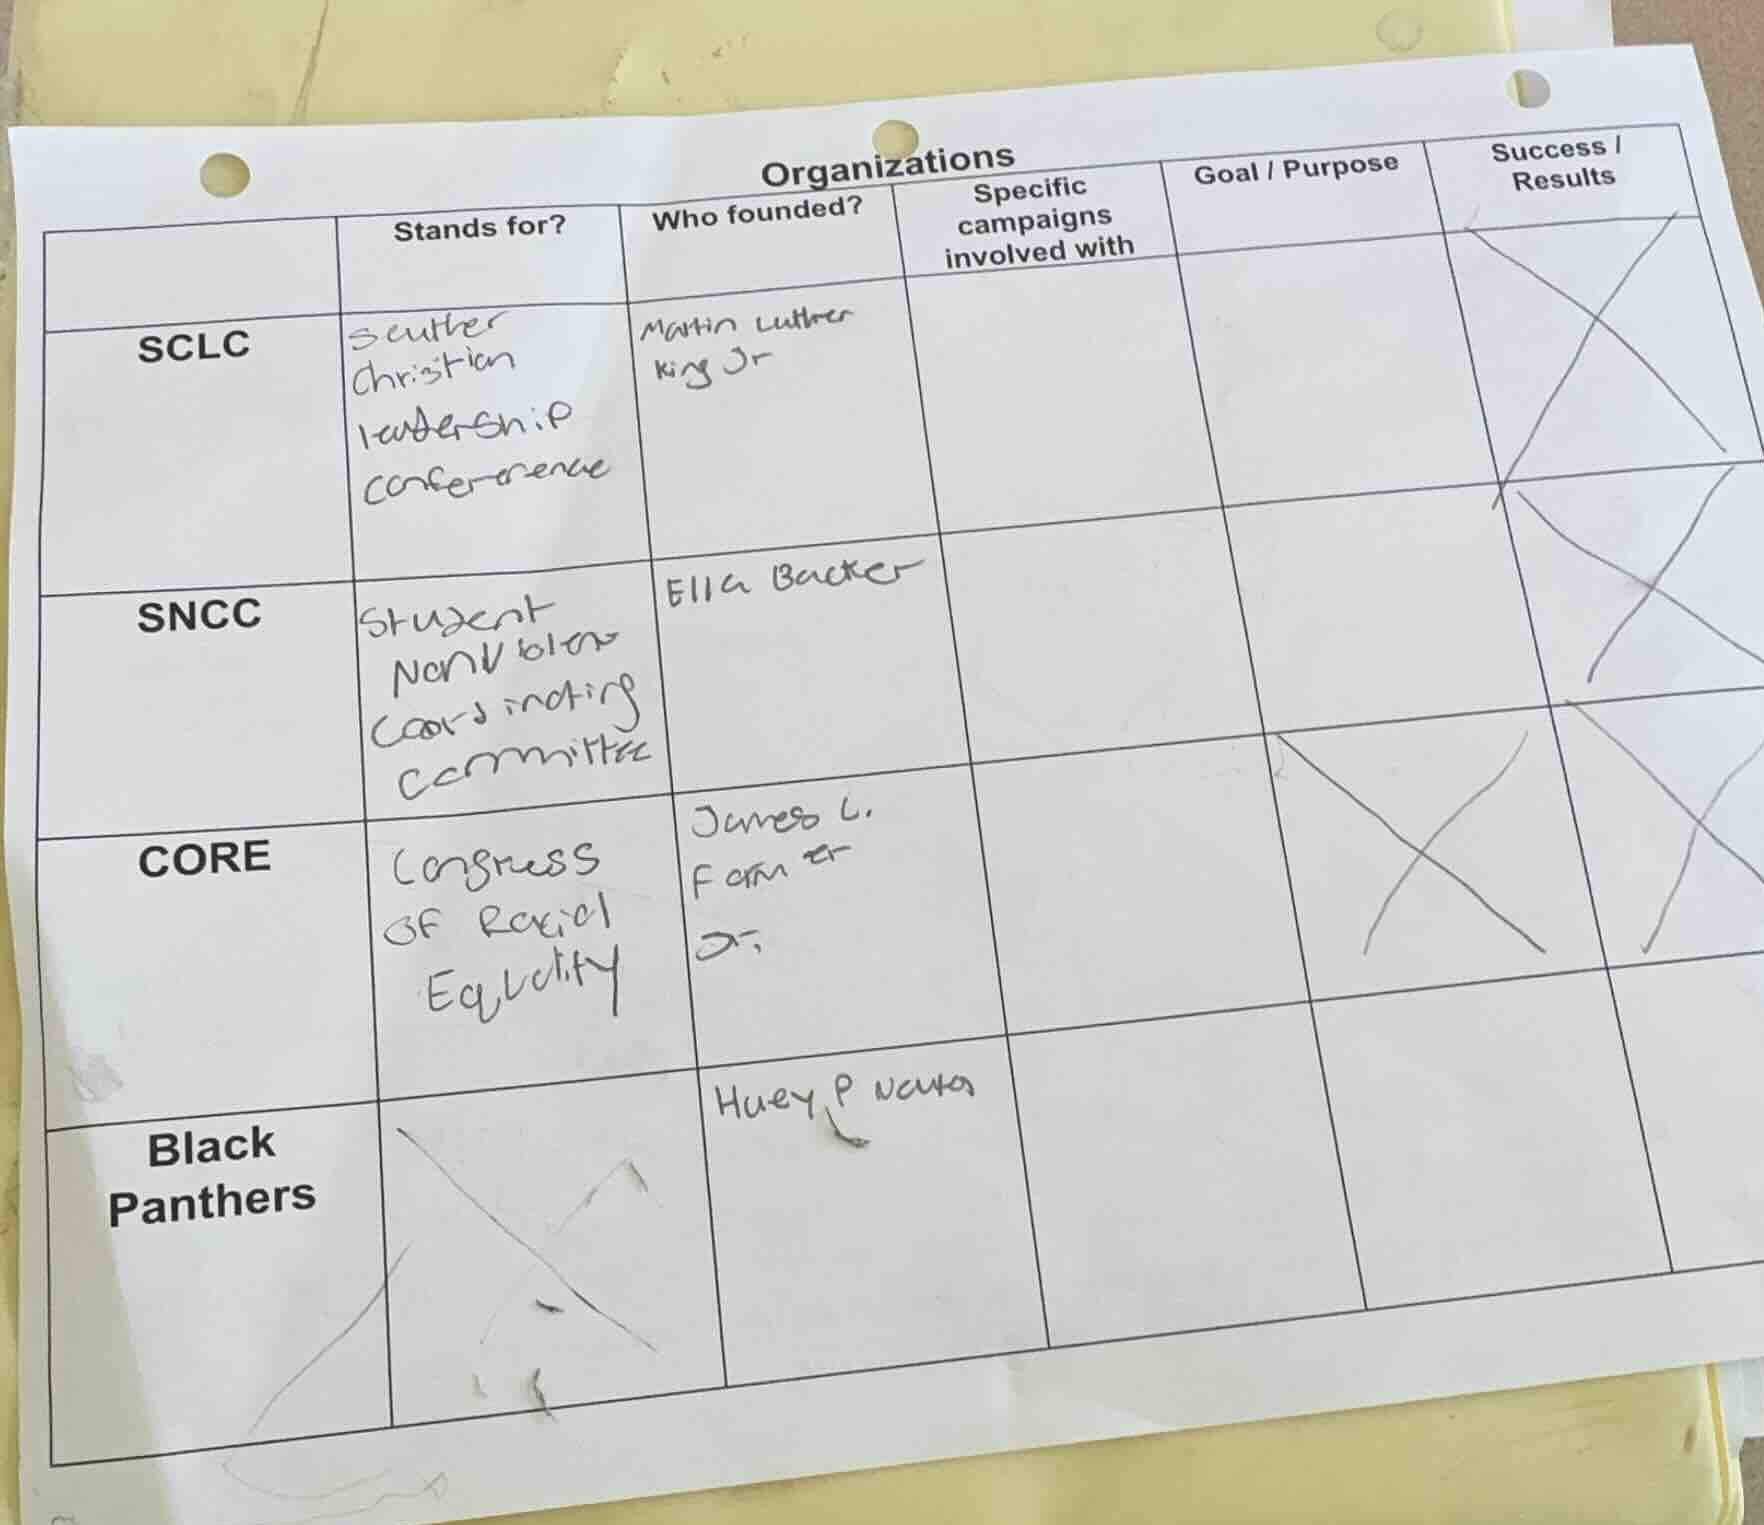 Organizations
Stands for?
Who founded?
Specific
campaigns
involved with
Goal / Purpose
Success /
Results
SCLC
Souther
Christian
leadership
conference
Martin Luther
King Jr
SNCC
Student
Nonviolen
Coordinating
committee
Ella Backer
CORE
Congress
OF Racial
Equality
James L.
Farmer
Jr.
Black
Panthers
Huey P